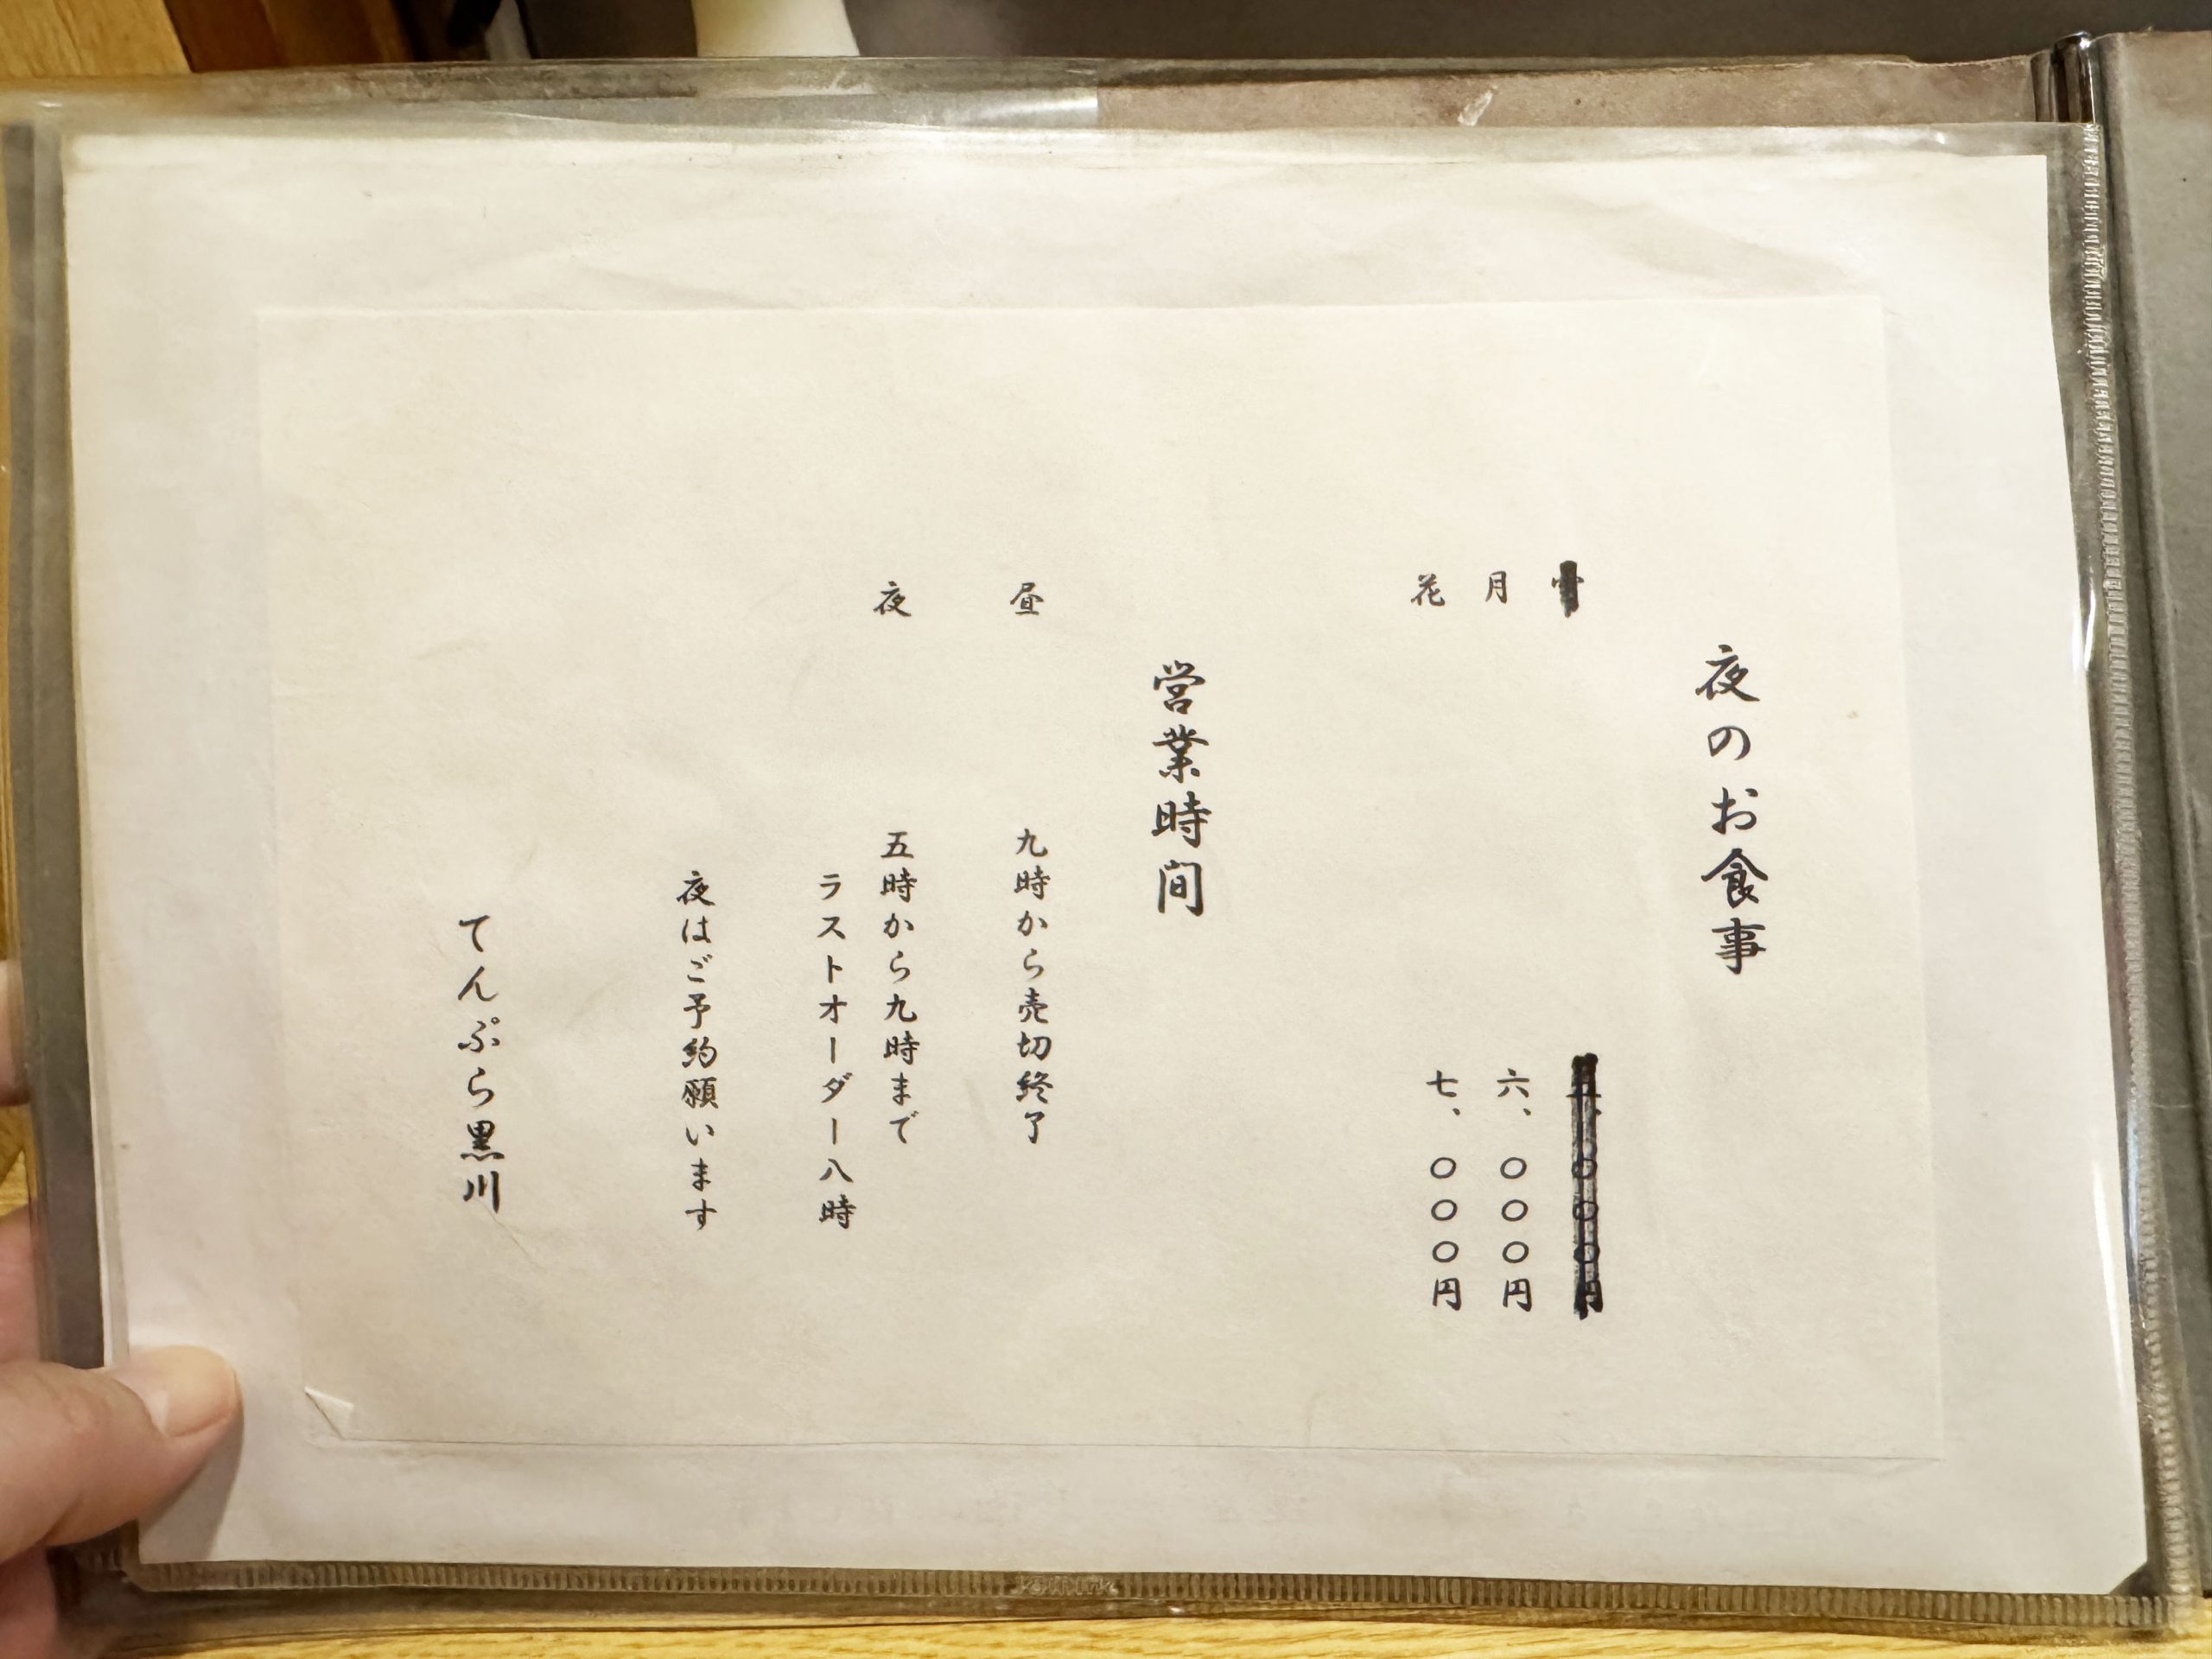 夜のお食事
月 六、〇〇〇円
花 七、〇〇〇円
営業時間
昼 九時から売切終了
夜 五時から九時まで
ラストオーダー八時
夜はご予約願います
てんぷら黒川